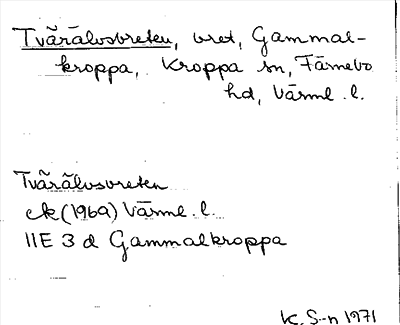 Tvärälvsvreten, vret, Gammal-
kroppa, Kroppa sn, Färnebo
hd, Värml. l.
Tvärälvsvreten
ek (1969) Värml. l.
11E 3 d Gammalkroppa
K. S-n 1971